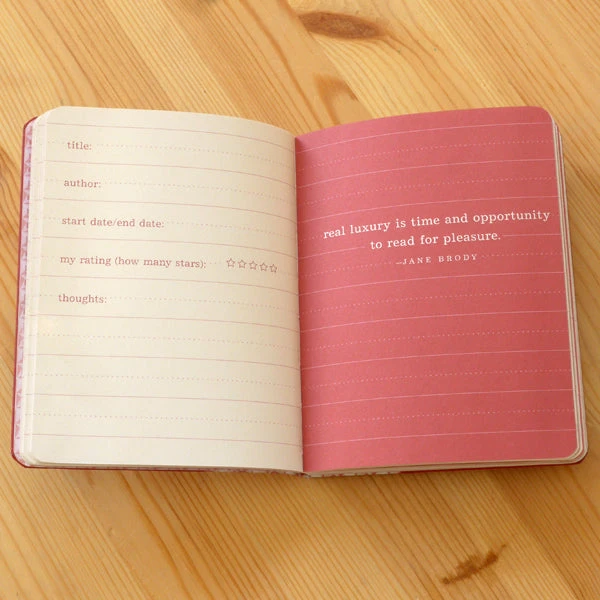 title:
author:
start date/end date:
my rating (how many stars): ☆☆☆☆☆
thoughts:
real luxury is time and opportunity
to read for pleasure.
—JANE BRODY